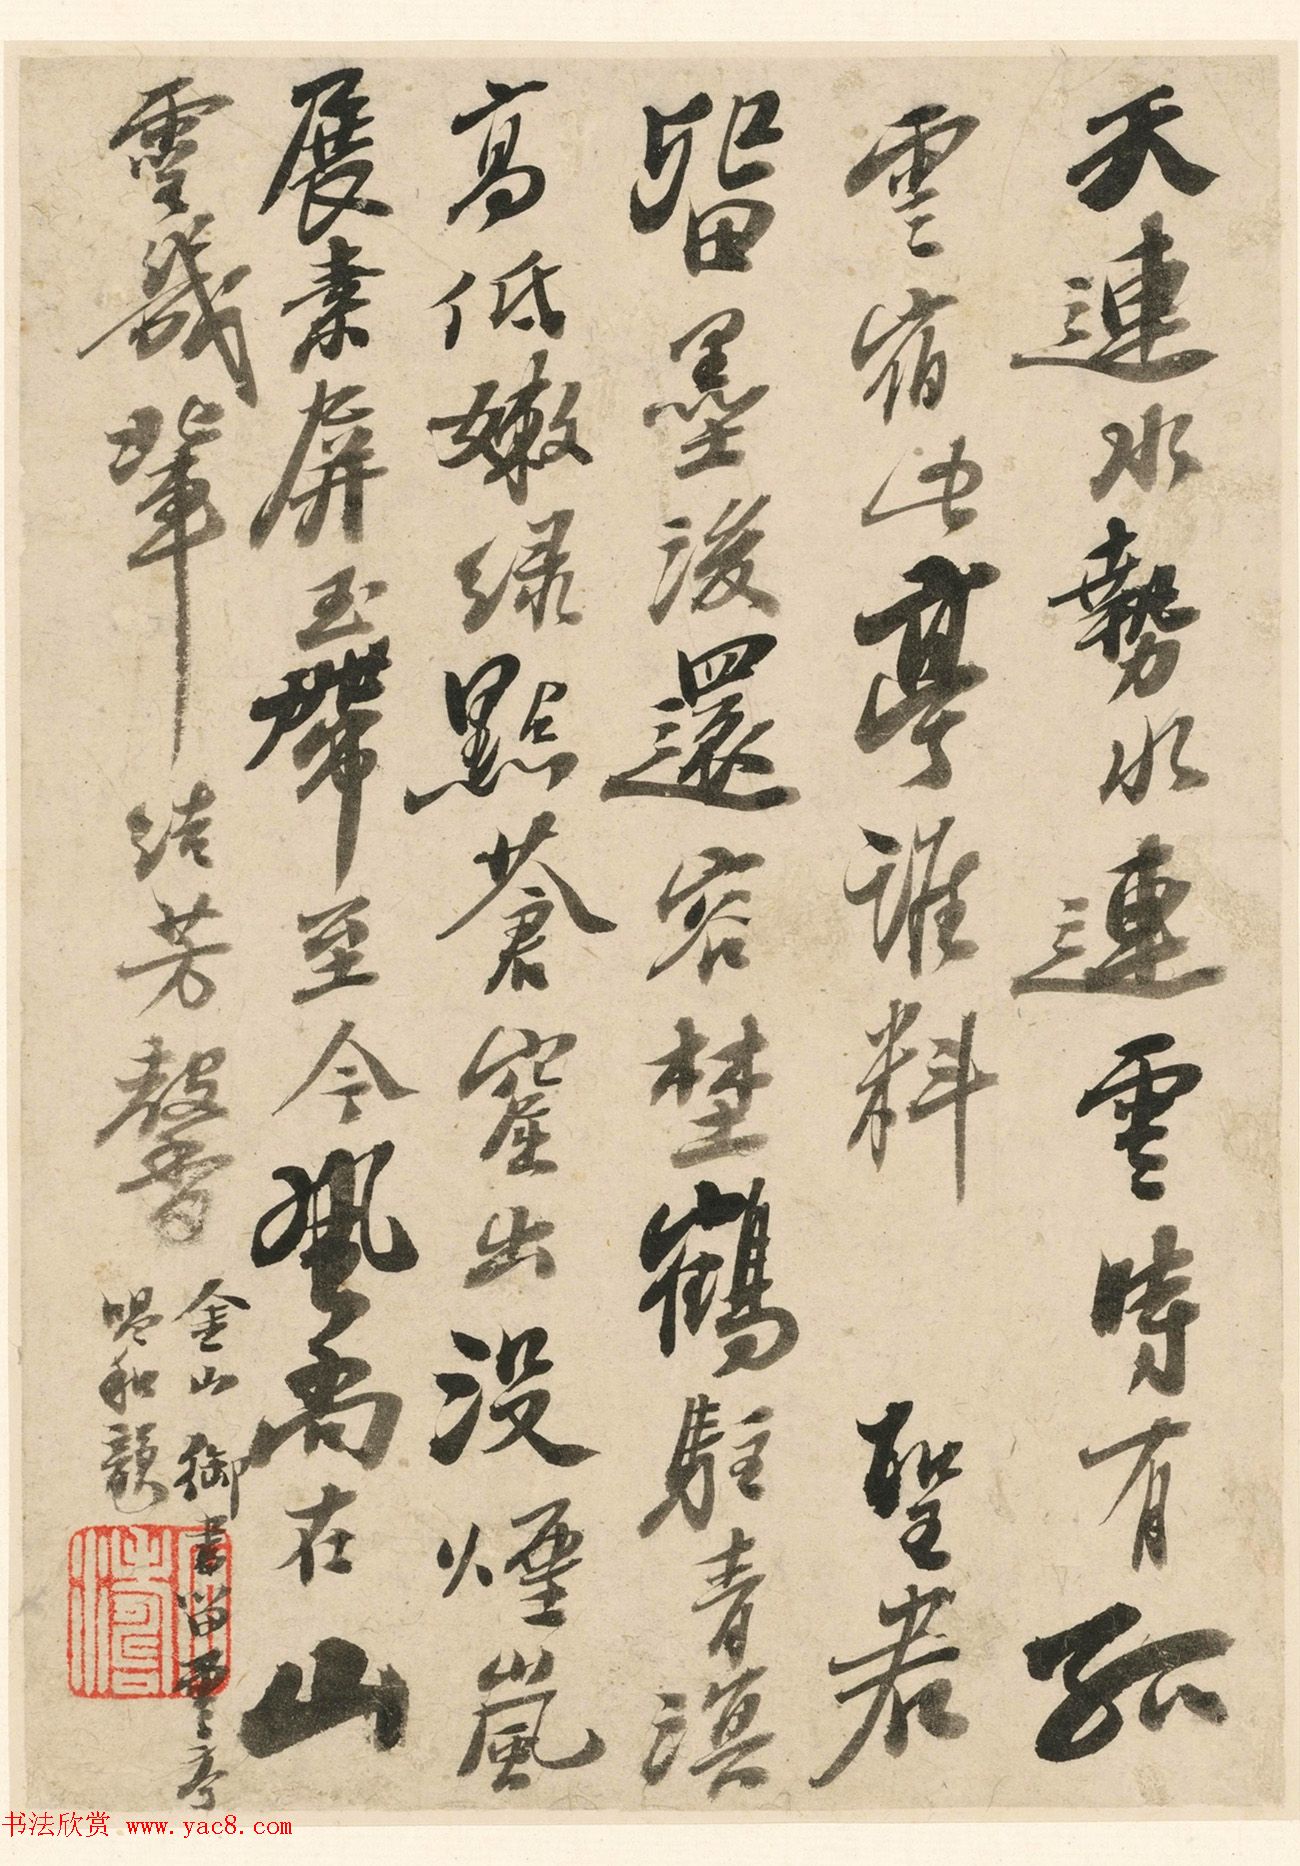 天連水勢水連雲時有孤
雲宿此亭誰料 聖君
留墨後還容埜鶴駐青溟
高低嫩綠點蒼崖出沒煙嵐
展素屏玉帶至今風尚在山
靈幾輩結芳馨
金山御書留雲亭
喝和韻
书法欣赏 www.yac8.com